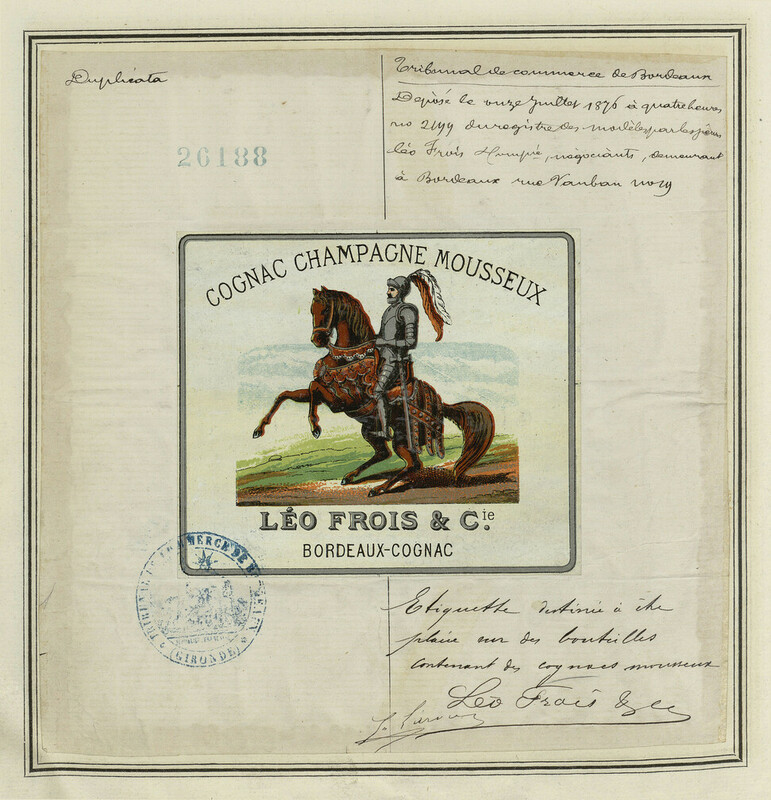 Duplicata
Tribunal de commerce de Bordeaux
Déposé le onze Juillet 1876 à quatre heures
no 2199 du registre des modèles par les sieurs
Léo Frois &
négociants, demeurant
à Bordeaux rue Vauban no 29
26188
COGNAC CHAMPAGNE MOUSSEUX
LÉO FROIS & Cie.
BORDEAUX-COGNAC
TRIBUNAL DE COMMERCE DE BORDEAUX
(GIRONDE)
Etiquette destinée à être
placée sur des bouteilles
contenant des cognacs mousseux
Léo Frois & Cie